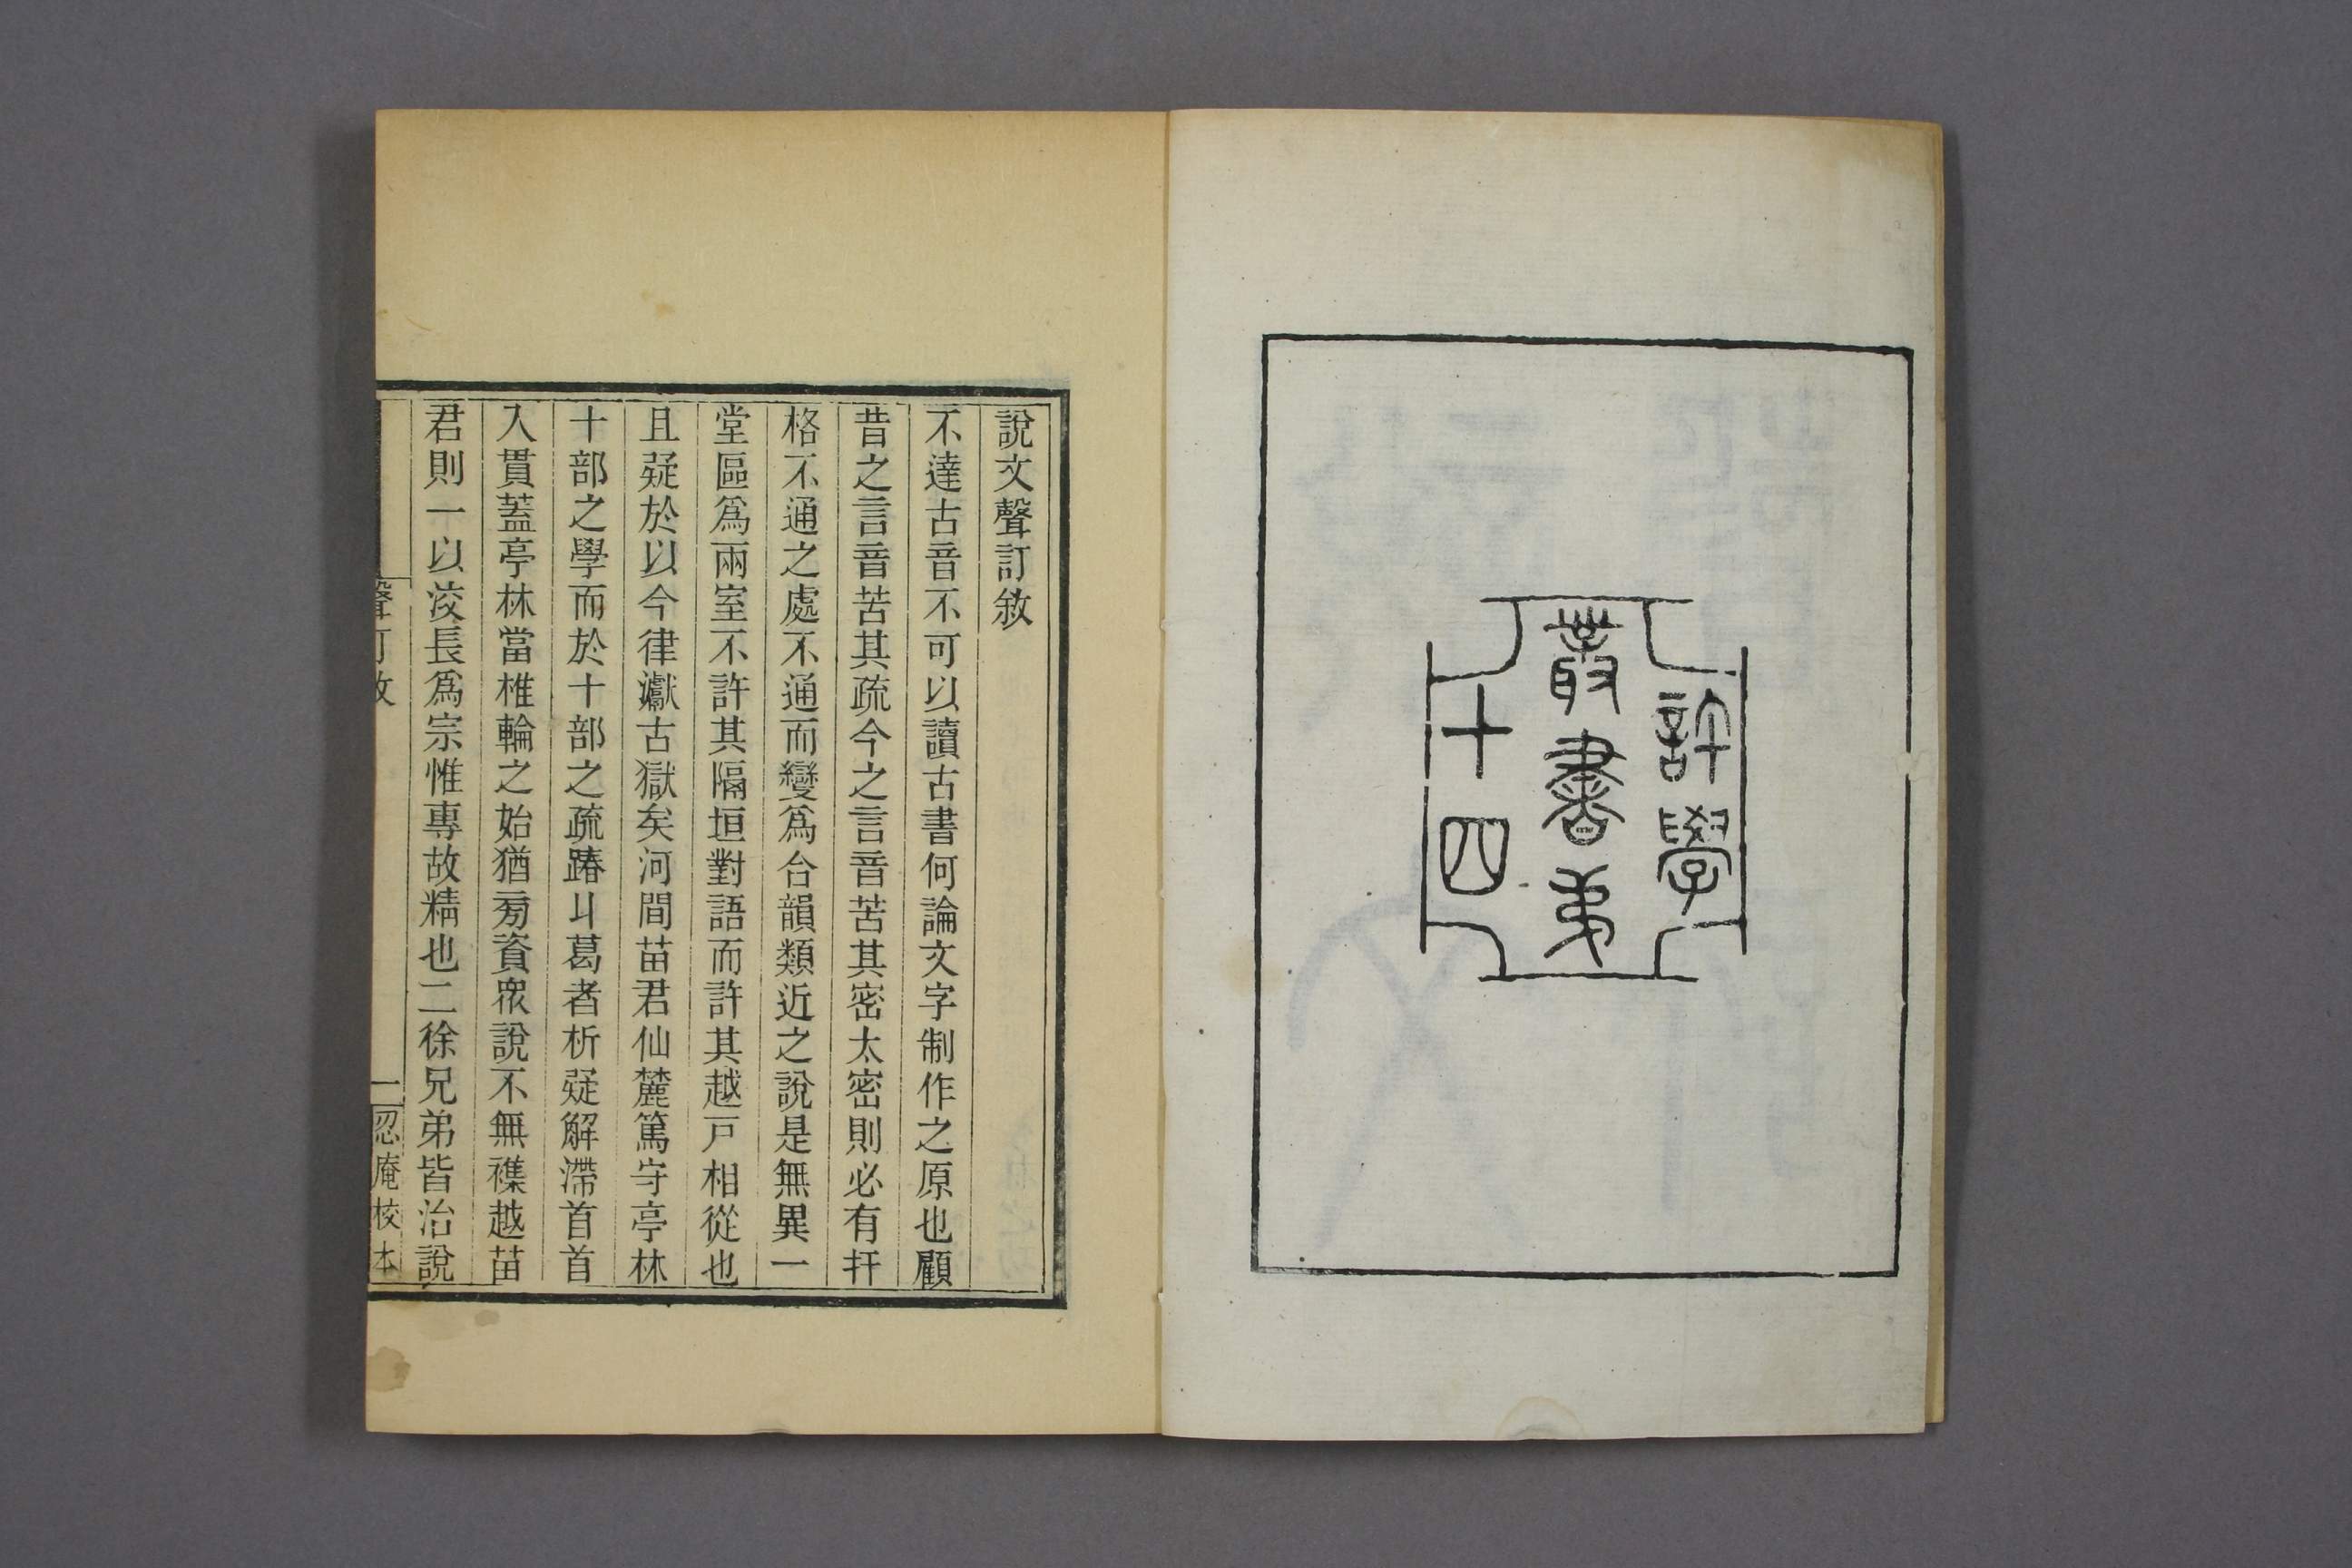 許學
叢書弟
十四
說文聲訂敘
不達古音不可以讀古書何論文字制作之原也顧
昔之言音苦其疏今之言音苦其密太密則必有扞
格不通之處不通而變爲合韻類近之說是無異一
堂區爲兩室不許其隔垣對語而許其越戸相從也
且疑於以今律讞古獄矣河間苗君仙麓篤守亭林
十部之學而於十部之疏踳丩葛者析疑解滯首首
入貫蓋亭林當椎輪之始猶㫄資衆說不無襍越苗
君則一以洨長爲宗惟專故精也二徐兄弟皆治說
聲訂敘
一
忍庵校本